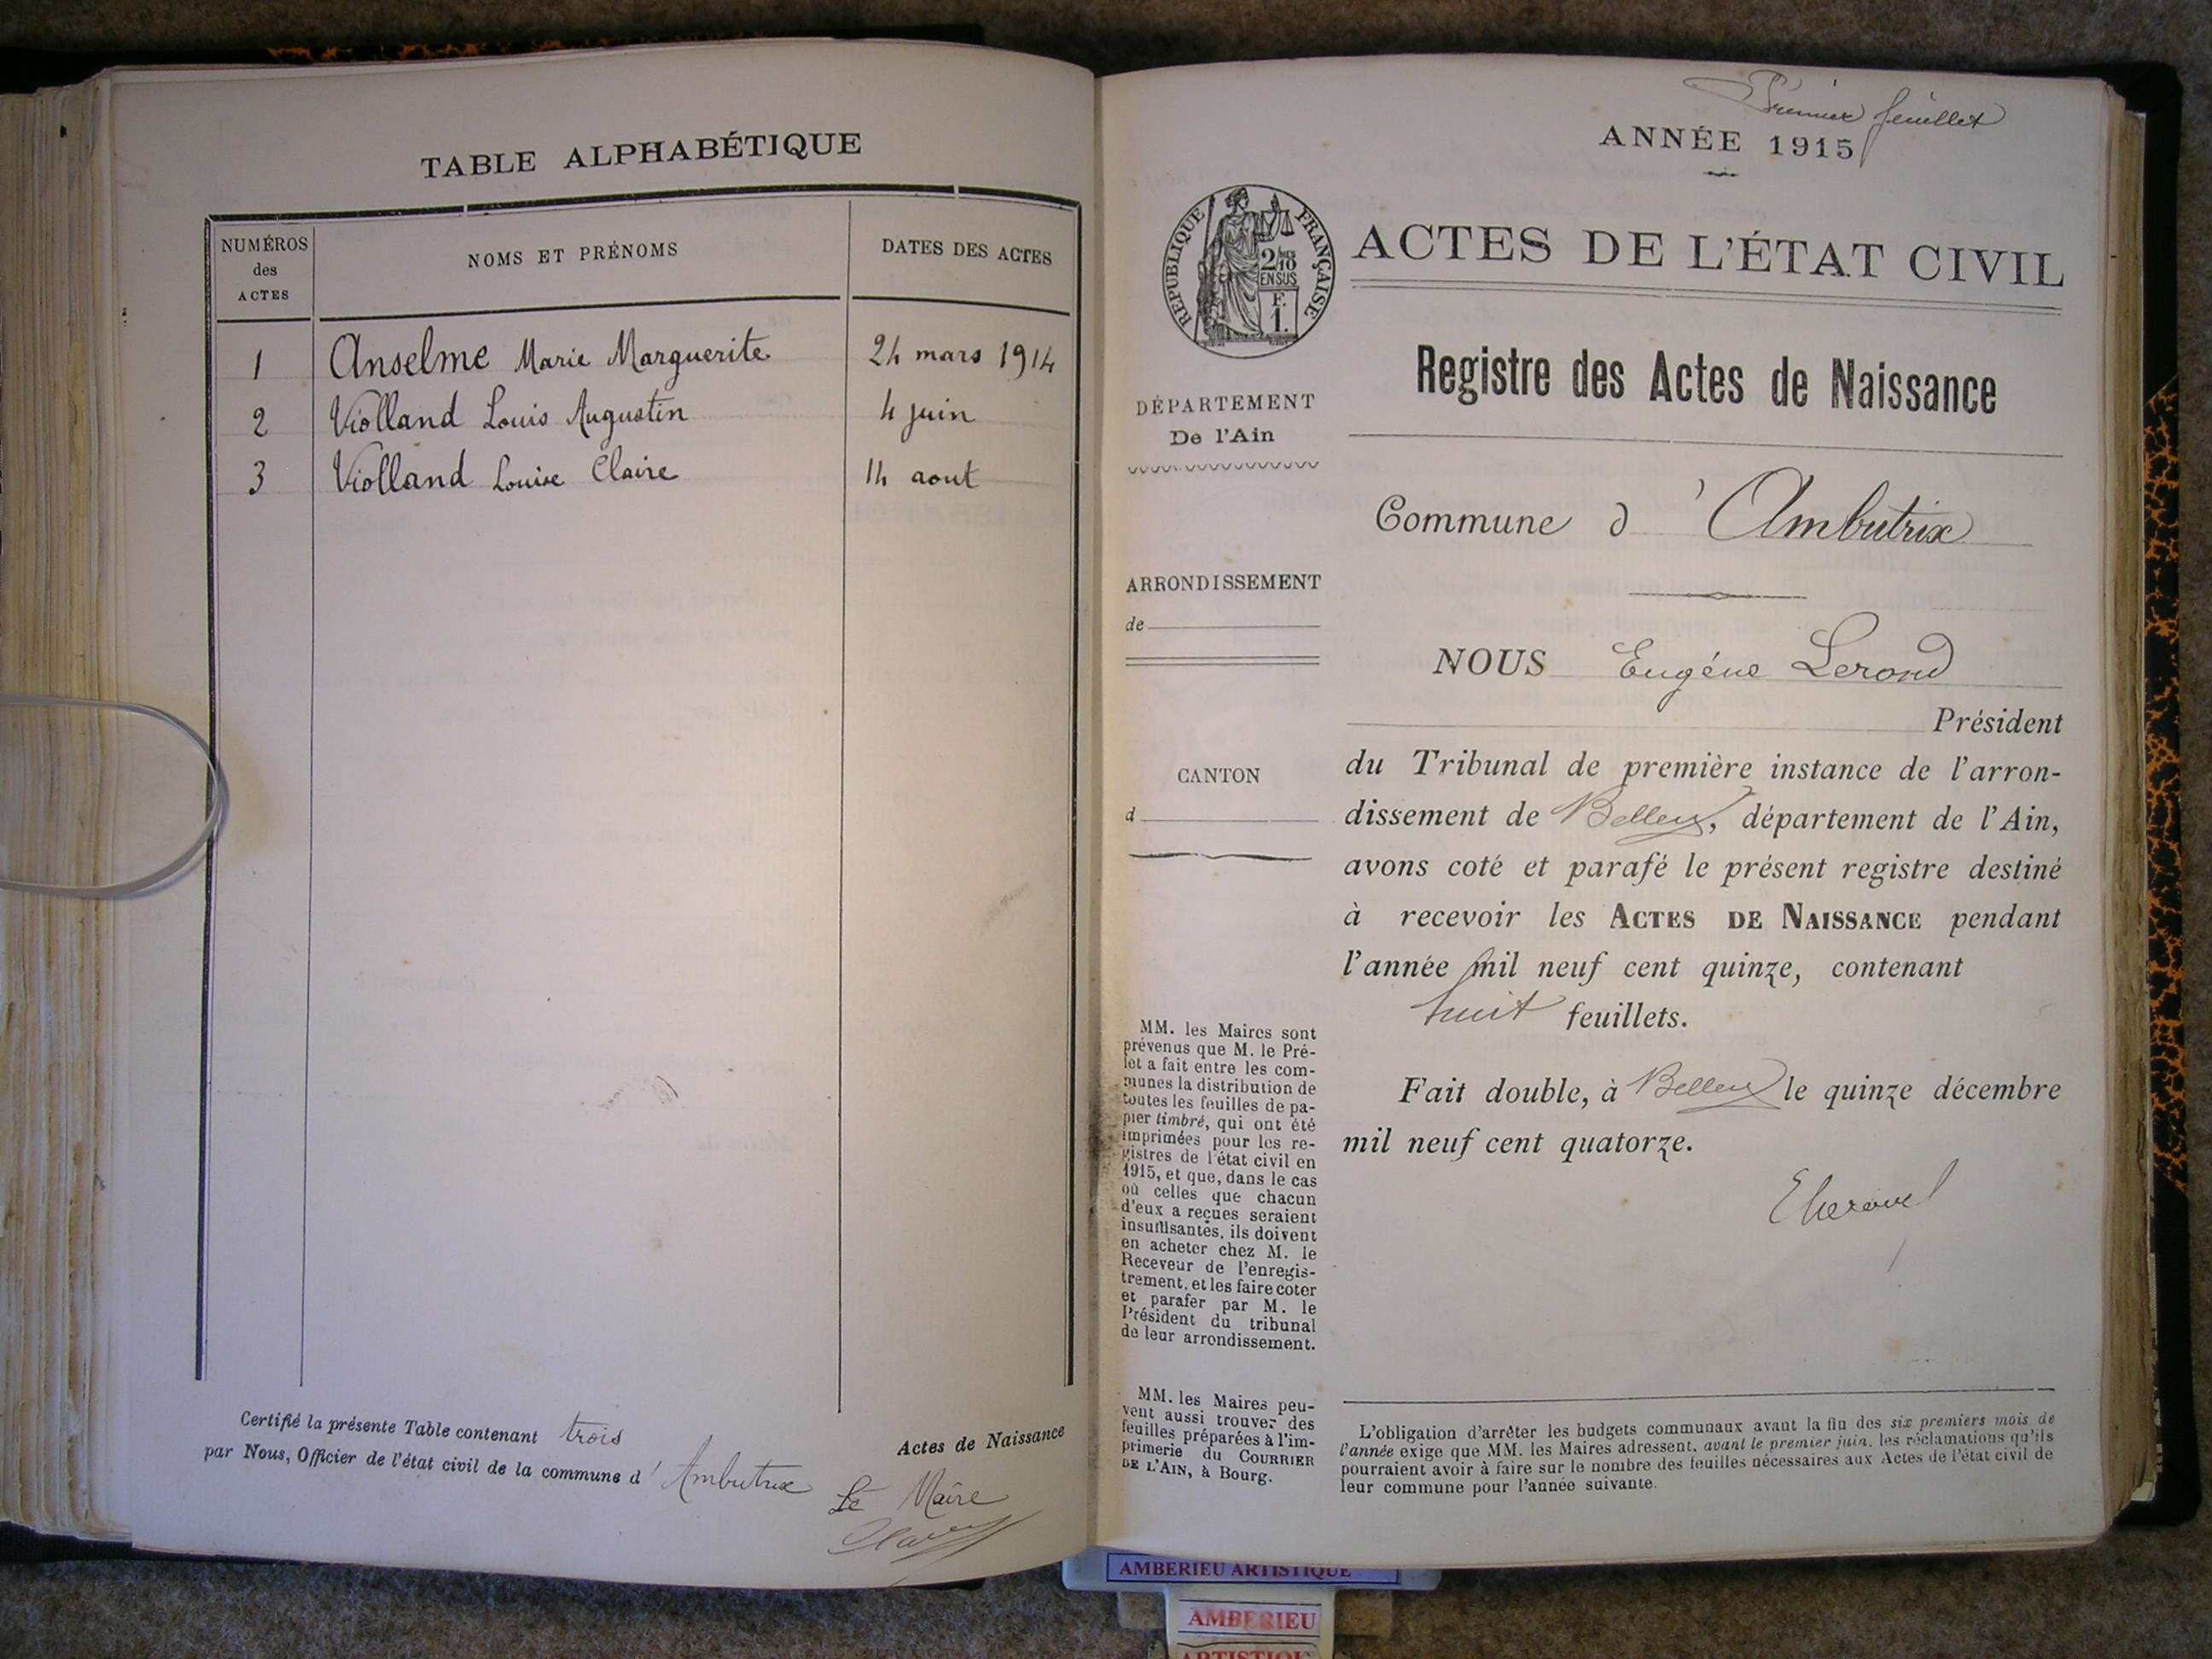 TABLE ALPHABÉTIQUE
NUMÉROS
des
ACTES
NOMS ET PRÉNOMS
DATES DES ACTES
1 Anselme Marie Marguerite 24 mars 1914
2 Violland Louis Augustin 4 juin
3 Violland Louise Claire 14 aout
Certifié la présente Table contenant trois Actes de Naissance
par Nous, Officier de l'état civil de la commune d'Ambutrix
Le Maire
Premier feuillet
ANNÉE 1915
RÉPUBLIQUE FRANÇAISE
2/10
EN SUS
F.
1.
ACTES DE L'ÉTAT CIVIL
Registre des Actes de Naissance
DÉPARTEMENT
De l'Ain
Commune d'Ambutrix
ARRONDISSEMENT
de
CANTON
d
NOUS Eugéne Lerond
Président
du Tribunal de première instance de l'arron-
dissement de Belley, département de l'Ain,
avons coté et parafé le présent registre destiné
à recevoir les ACTES DE NAISSANCE pendant
l'année mil neuf cent quinze, contenant
huit feuillets.
Fait double, à Belley le quinze décembre
mil neuf cent quatorze.
MM. les Maires sont
prévenus que M. le Pré-
fet a fait entre les com-
munes la distribution de
toutes les feuilles de pa-
pier timbré, qui ont été
imprimées pour les re-
gistres de l'état civil en
1915, et que, dans le cas
où celles que chacun
d'eux a reçues seraient
insuffisantes, ils doivent
en acheter chez M. le
Receveur de l'enregis-
trement, et les faire coter
et parafer par M. le
Président du tribunal
de leur arrondissement.
MM. les Maires peu-
vent aussi trouver des
feuilles préparées à l'im-
primerie du COURRIER
DE L'AIN, à Bourg.
L'obligation d'arrêter les budgets communaux avant la fin des six premiers mois de
l'année exige que MM. les Maires adressent, avant le premier juin, les réclamations qu'ils
pourraient avoir à faire sur le nombre des feuilles nécessaires aux Actes de l'état civil de
leur commune pour l'année suivante.
AMBERIEU ARTISTIQUE
AMBERIEU
ARTISTIQU